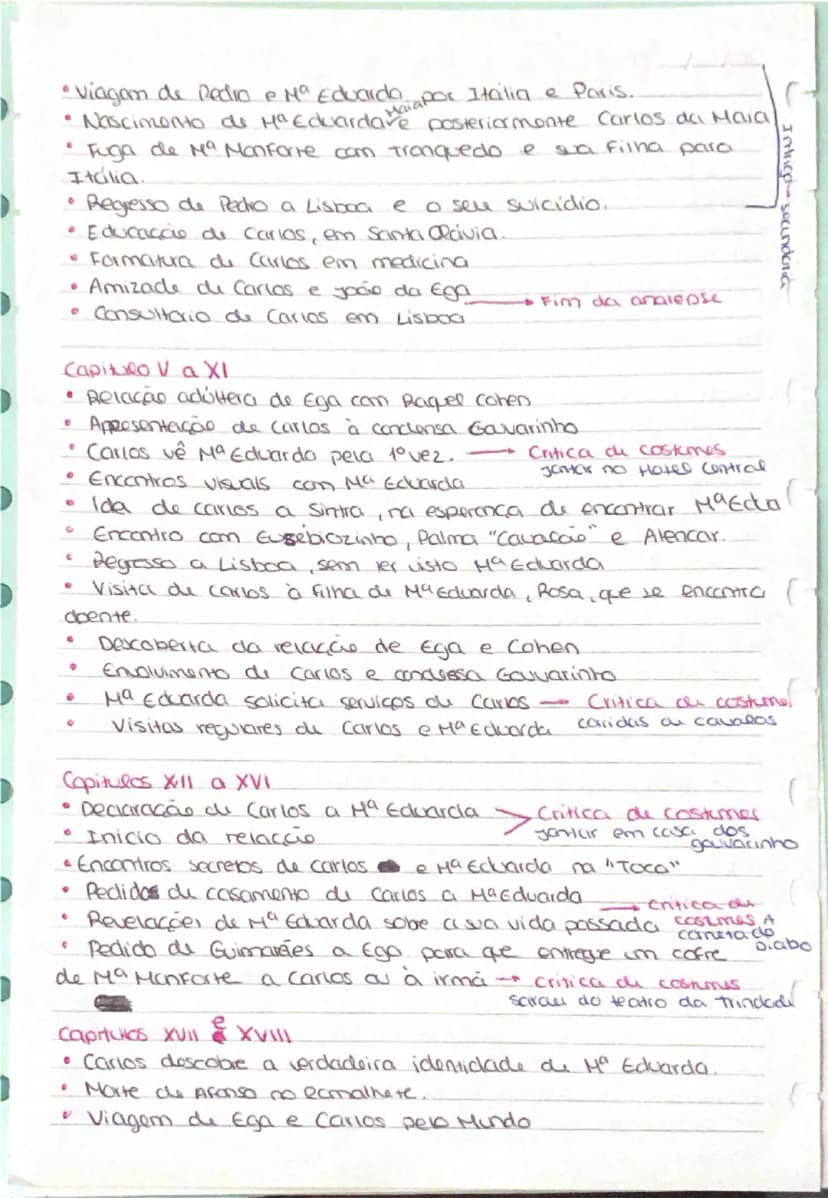 • Viagem de Pedro e Mª Eduarda por Itália e Paris.
• Nascimento de Mª Eduarda Maia e posteriormente Carlos da Maia
• Fuga de Mª Monforte com Tranquedo e sua filha para
Itália.
Intriga secundária
• Regresso de Pedro a Lisboa e o seu suicídio.
• Educação de Carlos, em Santa Olávia.
• Formatura de Carlos em medicina
• Amizade de Carlos e João da Ega
→ Fim da analepse
• Consultório de Carlos em Lisboa
Capitulo V a XI
• Relação adúltera de Ega com Raquel Cohen
• Apresentação de Carlos à condensa Gavarinho
• Carlos vê Mª Eduarda pela 1º vez. → Critica de costumes
jantar no Hotel Central
• Encontros visuais com Mª Eduarda
• Ida de Carlos a Sintra, na esperança de encontrar MªEda
• Encontro com Eusébiozinho, Palma "Cavacão" e Alencar.
• Regresso a Lisboa, sem ter visto Mª Eduarda
• Visita de Carlos à filha de Mª Eduarda, Rosa, que se encontra
doente.
• Descoberta da relacção de Ega e Cohen
• Envolvimento de Carlos e condessa Gavarinho
• Mª Eduarda solicita serviços de Carlos → Critica de costumes
corridas de cavalos
• Visitas regulares de Carlos e Mª Eduarda
Capitulos XII a XVI
• Declaração de Carlos a Mª Eduarda > Critica de costumes
jantar em casa dos
gavarinho
• Inicio da relacção
• Encontros secretos de Carlos e Mª Eduarda na "Toca"
• Pedidos de casamento de Carlos a Mª Eduarda
→ Critica de
costumes A
corneta do
Diabo
• Revelações de Mª Eduarda sobre a sua vida passada
• Pedido de Guimarães a Ega para que entregue um cofre
de Mª Monforte a Carlos ou à irmã → critica de costumes
sarau do teatro da trindade
Capitulos XVII e XVIII
• Carlos descobre a verdadeira identidade de Mª Eduarda.
• Morte de Afonso no Ramalhete.
• Viagem de Ega e Carlos pelo Mundo